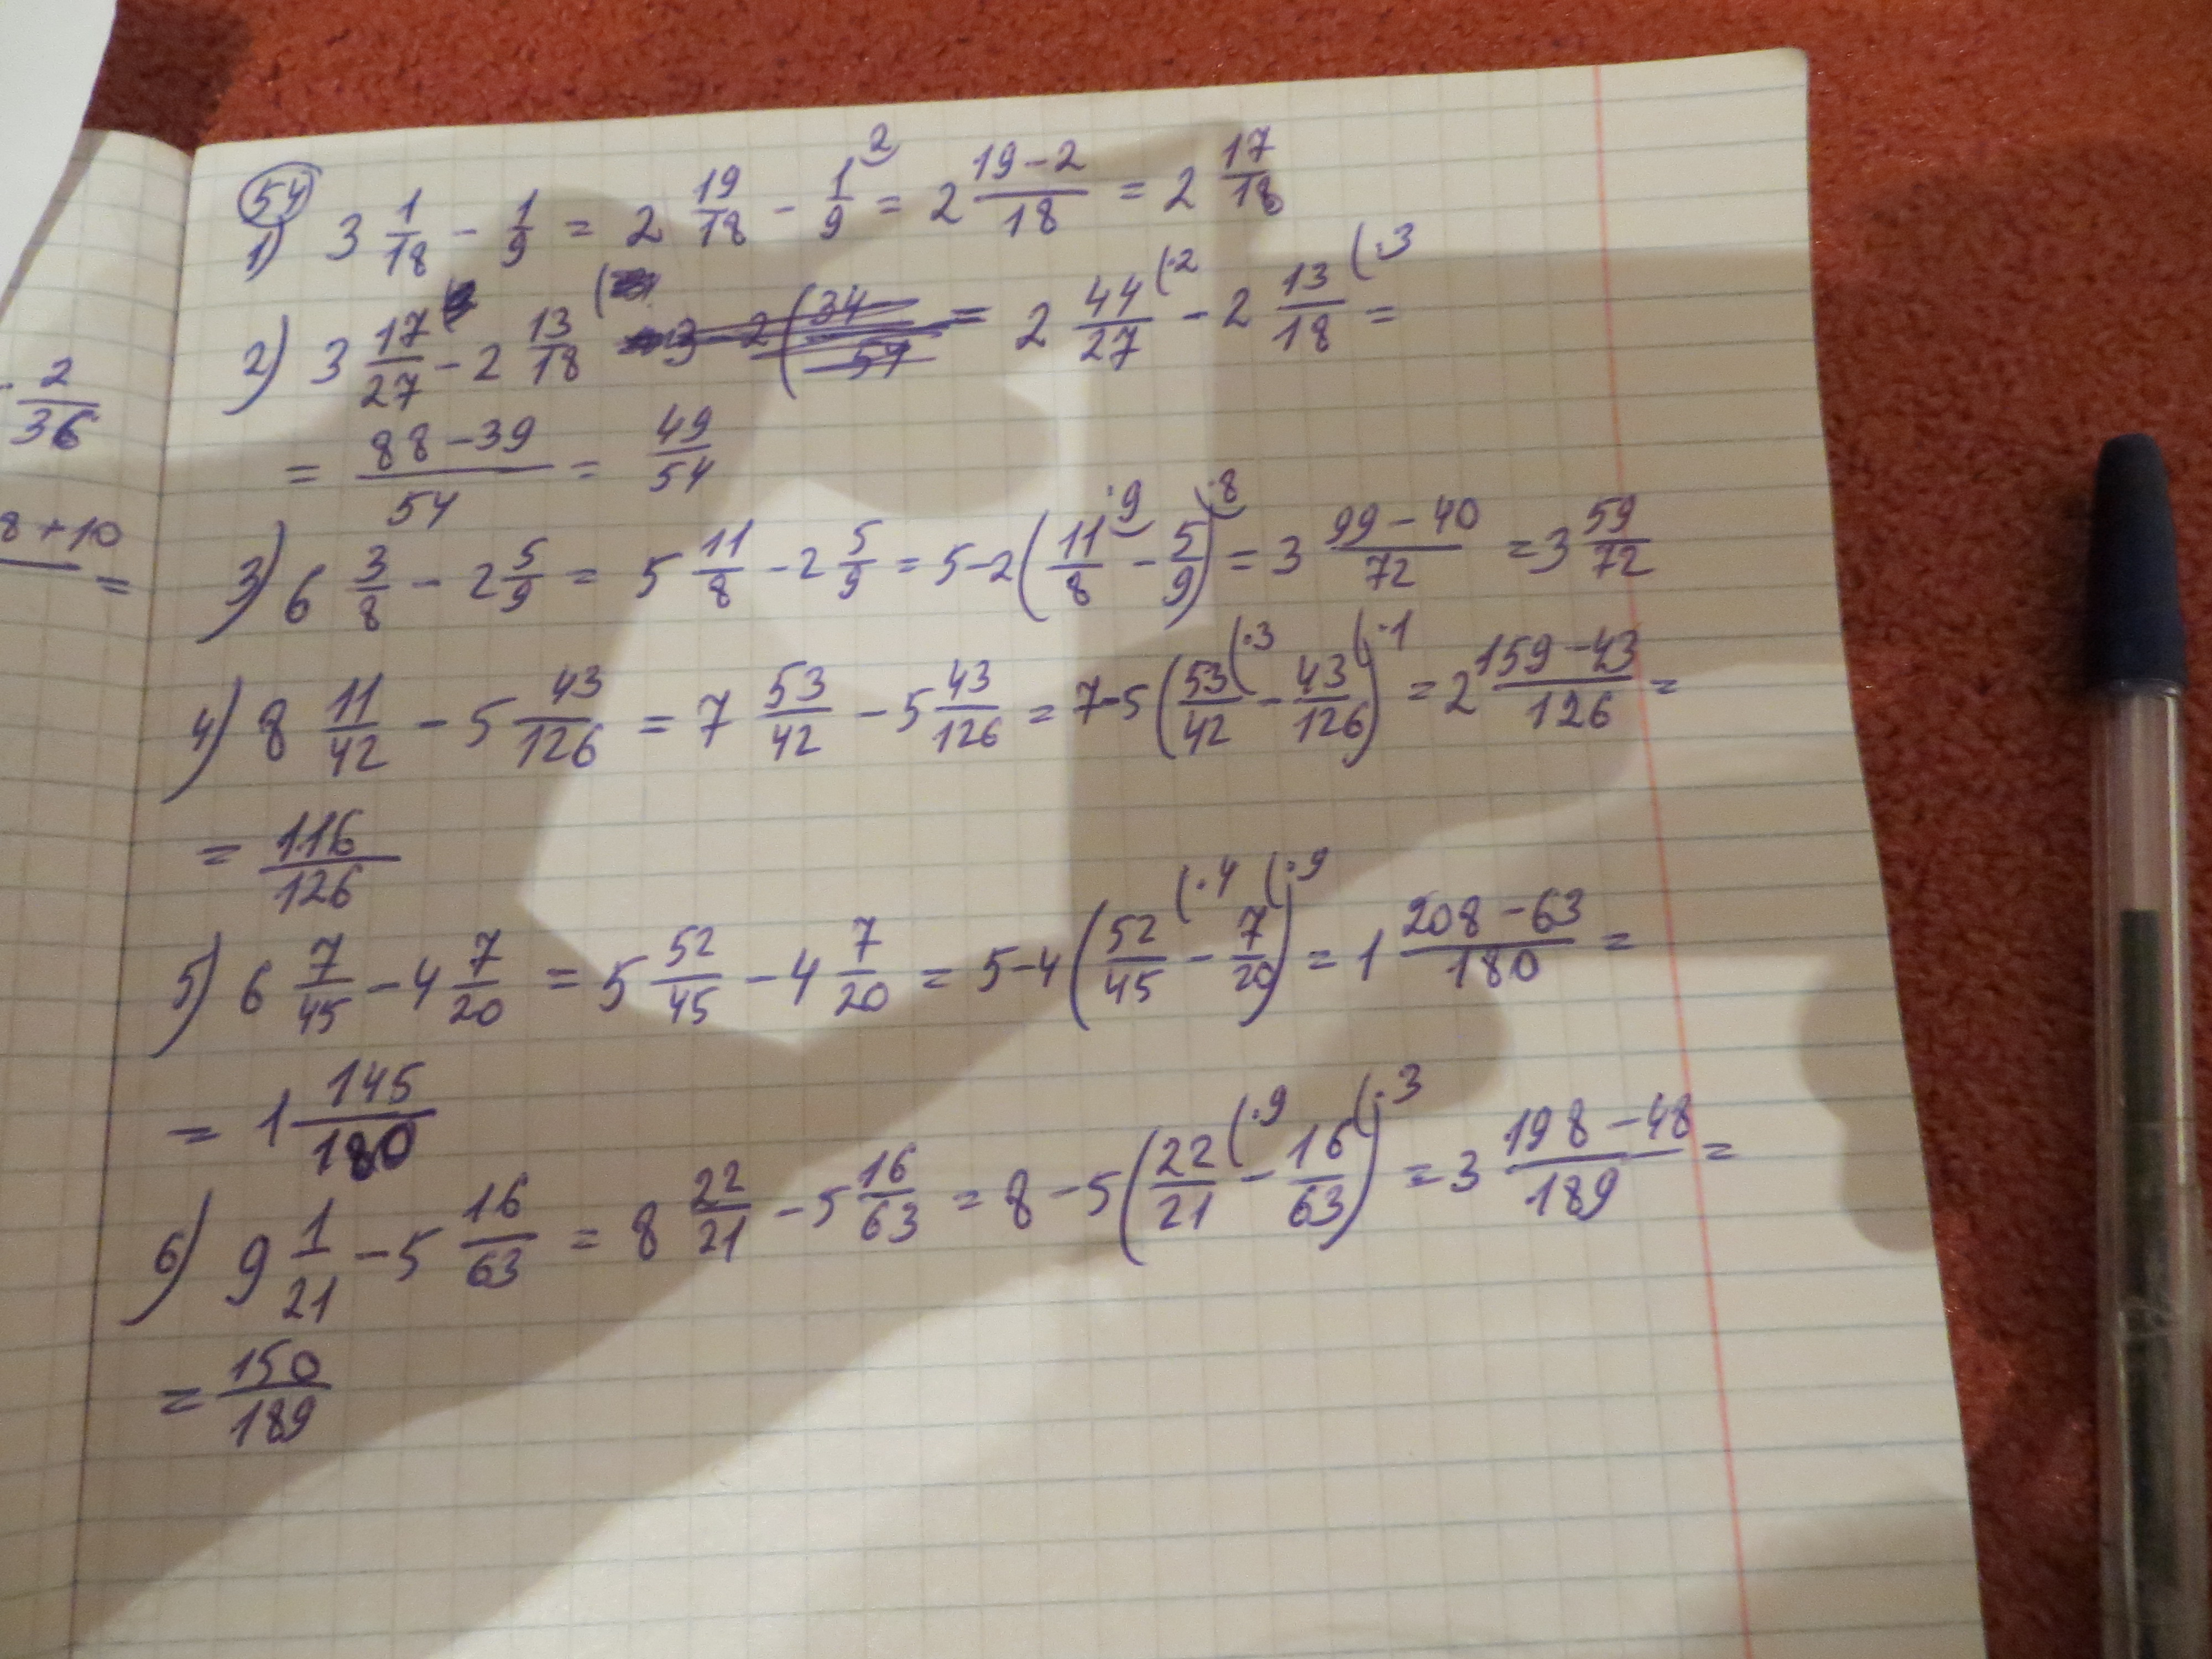 - 2/36
8+10/ =
54
1) 3 1/18 - 1/9 = 2 19/18 - 1/9 (2 = 2 (19-2)/18 = 2 17/18
2) 3 17/27 - 2 13/18 = 2 44/27 (·2 - 2 13/18 (·3 =
= (88-39)/54 = 49/54
3) 6 3/8 - 2 5/9 = 5 11/8 - 2 5/9 = 5-2 (11/8 ·9 - 5/9) ·8 = 3 (99-40)/72 = 3 59/72
4) 8 11/42 - 5 43/126 = 7 53/42 - 5 43/126 = 7-5 (53/42 (·3 - 43/126 (·1) = 2 (159-43)/126 =
= 116/126
5) 6 7/45 - 4 7/20 = 5 52/45 - 4 7/20 = 5-4 (52/45 (·4 - 7/20 (·9) = 1 (208-63)/180 =
= 1 145/180
6) 9 1/21 - 5 16/63 = 8 22/21 - 5 16/63 = 8-5 (22/21 (·9 - 16/63 (·3) = 3 (198-48)/189 =
= 150/189